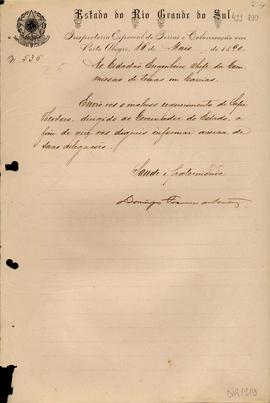 Estado do Rio Grande do Sul
Inspectoria Especial de Terras e Colonisação em
Porto Alegre, 10 de Maio de 1890.
N. 535
Ao Cidadão Engenheiro Chefe da Com-
missão de Terras em Caxias.
Envio vos o incluso requerimento de
dirigido ao Governador do Estado, a
fim de que vos digneis informar acerca de
suas allegações.
Saude e fraternidade
Domingos